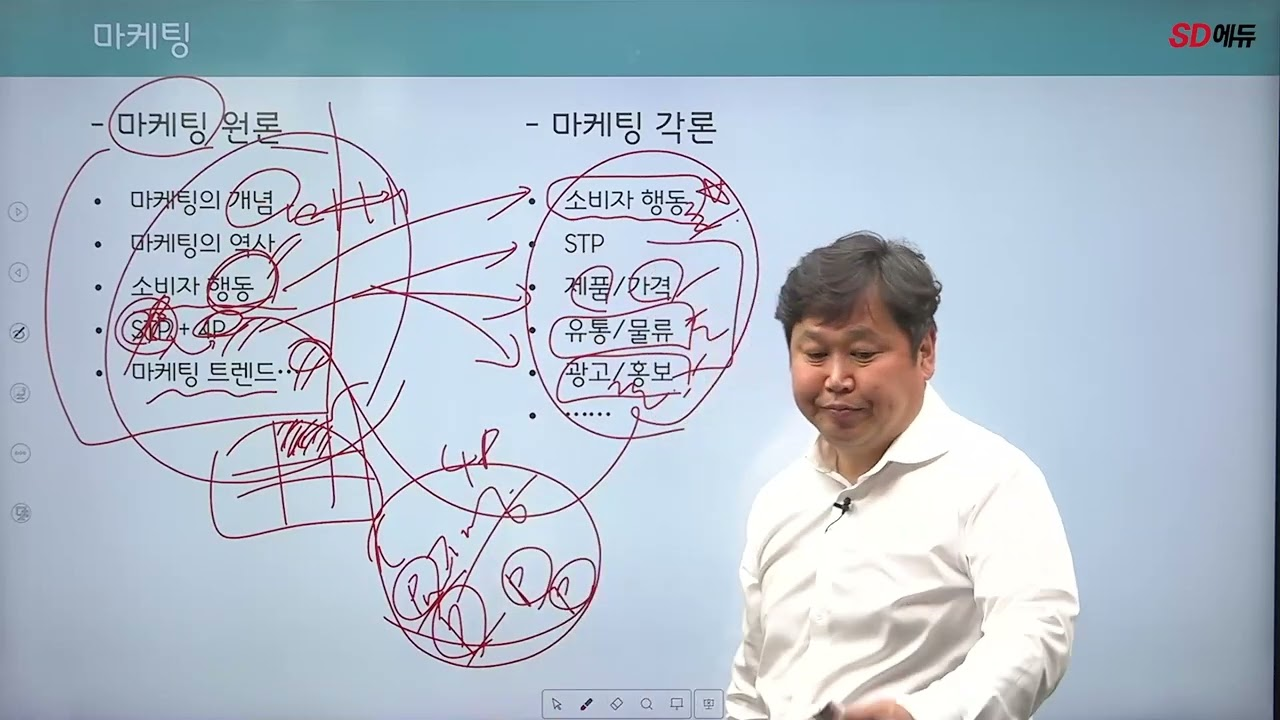 마케팅
SD에듀
- 마케팅 원론
• 마케팅의 개념
• 마케팅의 역사
• 소비자 행동
• STP + 4P
• 마케팅 트렌드…
- 마케팅 각론
• 소비자 행동
• STP
• 제품/가격
• 유통/물류
• 광고/홍보
• ……
4P
P
P P